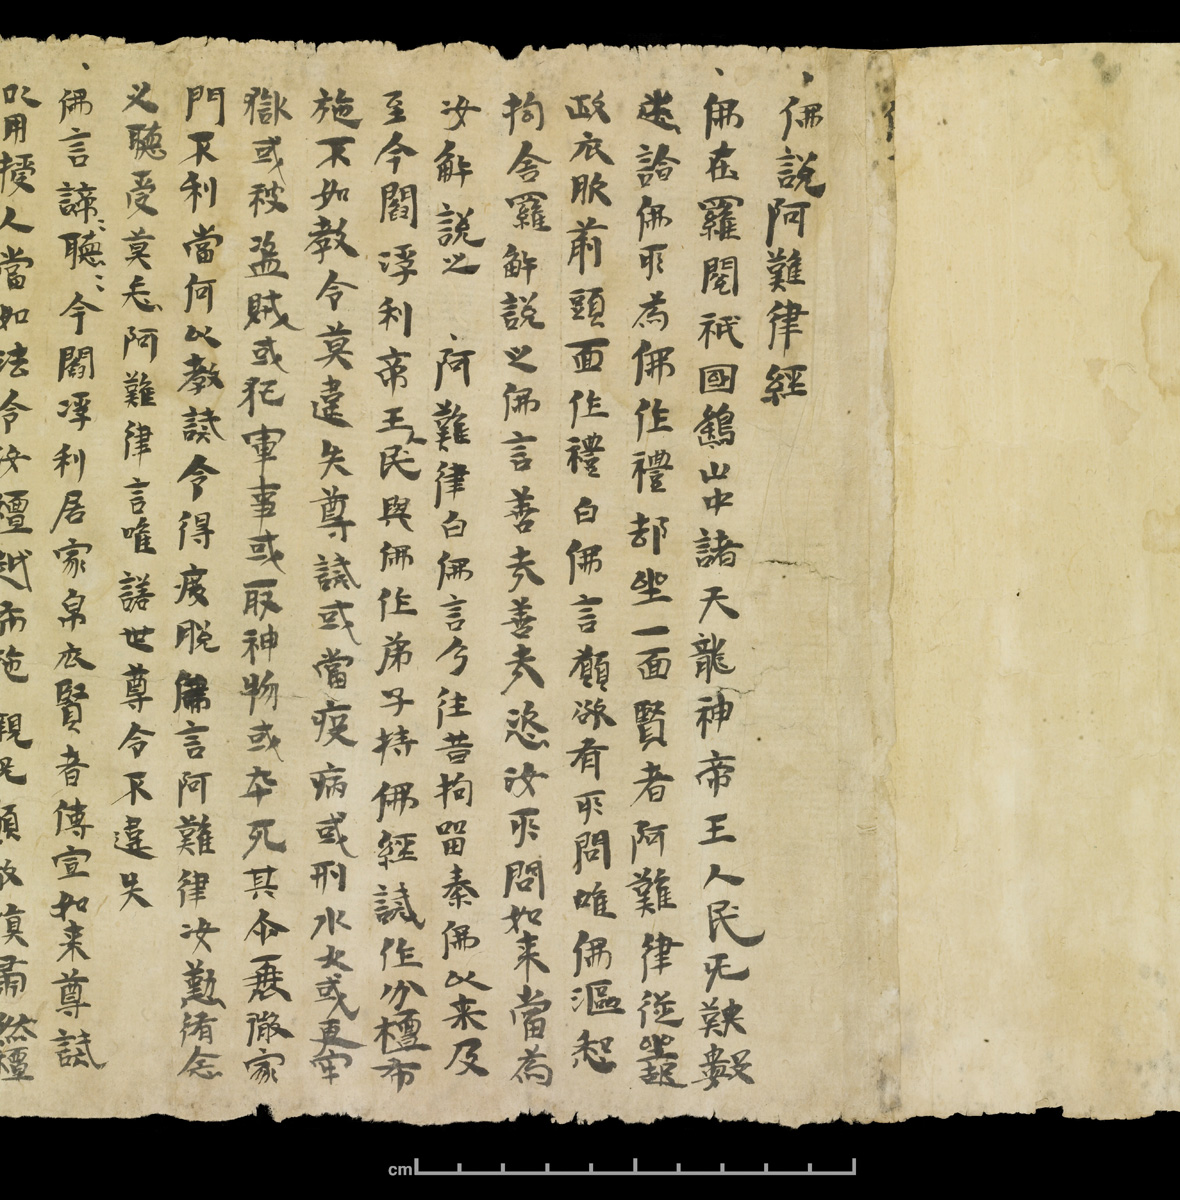 佛說阿難律經
佛在羅閱祇國鷂山中諸天龍神帝王人民无鞅數
迷詣佛所為佛作禮却坐一面賢者阿難律從坐起
政衣服前頭面作禮白佛言願欲有所問唯佛漚恕
拘舍羅解說之佛言善哉善哉恣汝所問如來當為
汝解說之 阿難律白佛言今往昔拘留秦佛以来及
至今閻浮利帝王人民與佛作弟子持佛經誡作分檀布
施不如教令莫違失尊誡或當疫病或刑水火或更牢
獄或被盜賊或犯軍事或取神物或卒死其命一懸徹家
門不利當何以教誡令得度脫佛言阿難律汝懃脩念
义聽受莫忘阿難律言唯諾世尊令不違失
佛言諦〻聽〻今閻浮利居家帛衣賢者傳宣如来尊誡
用授人當如法令汝檀越布施